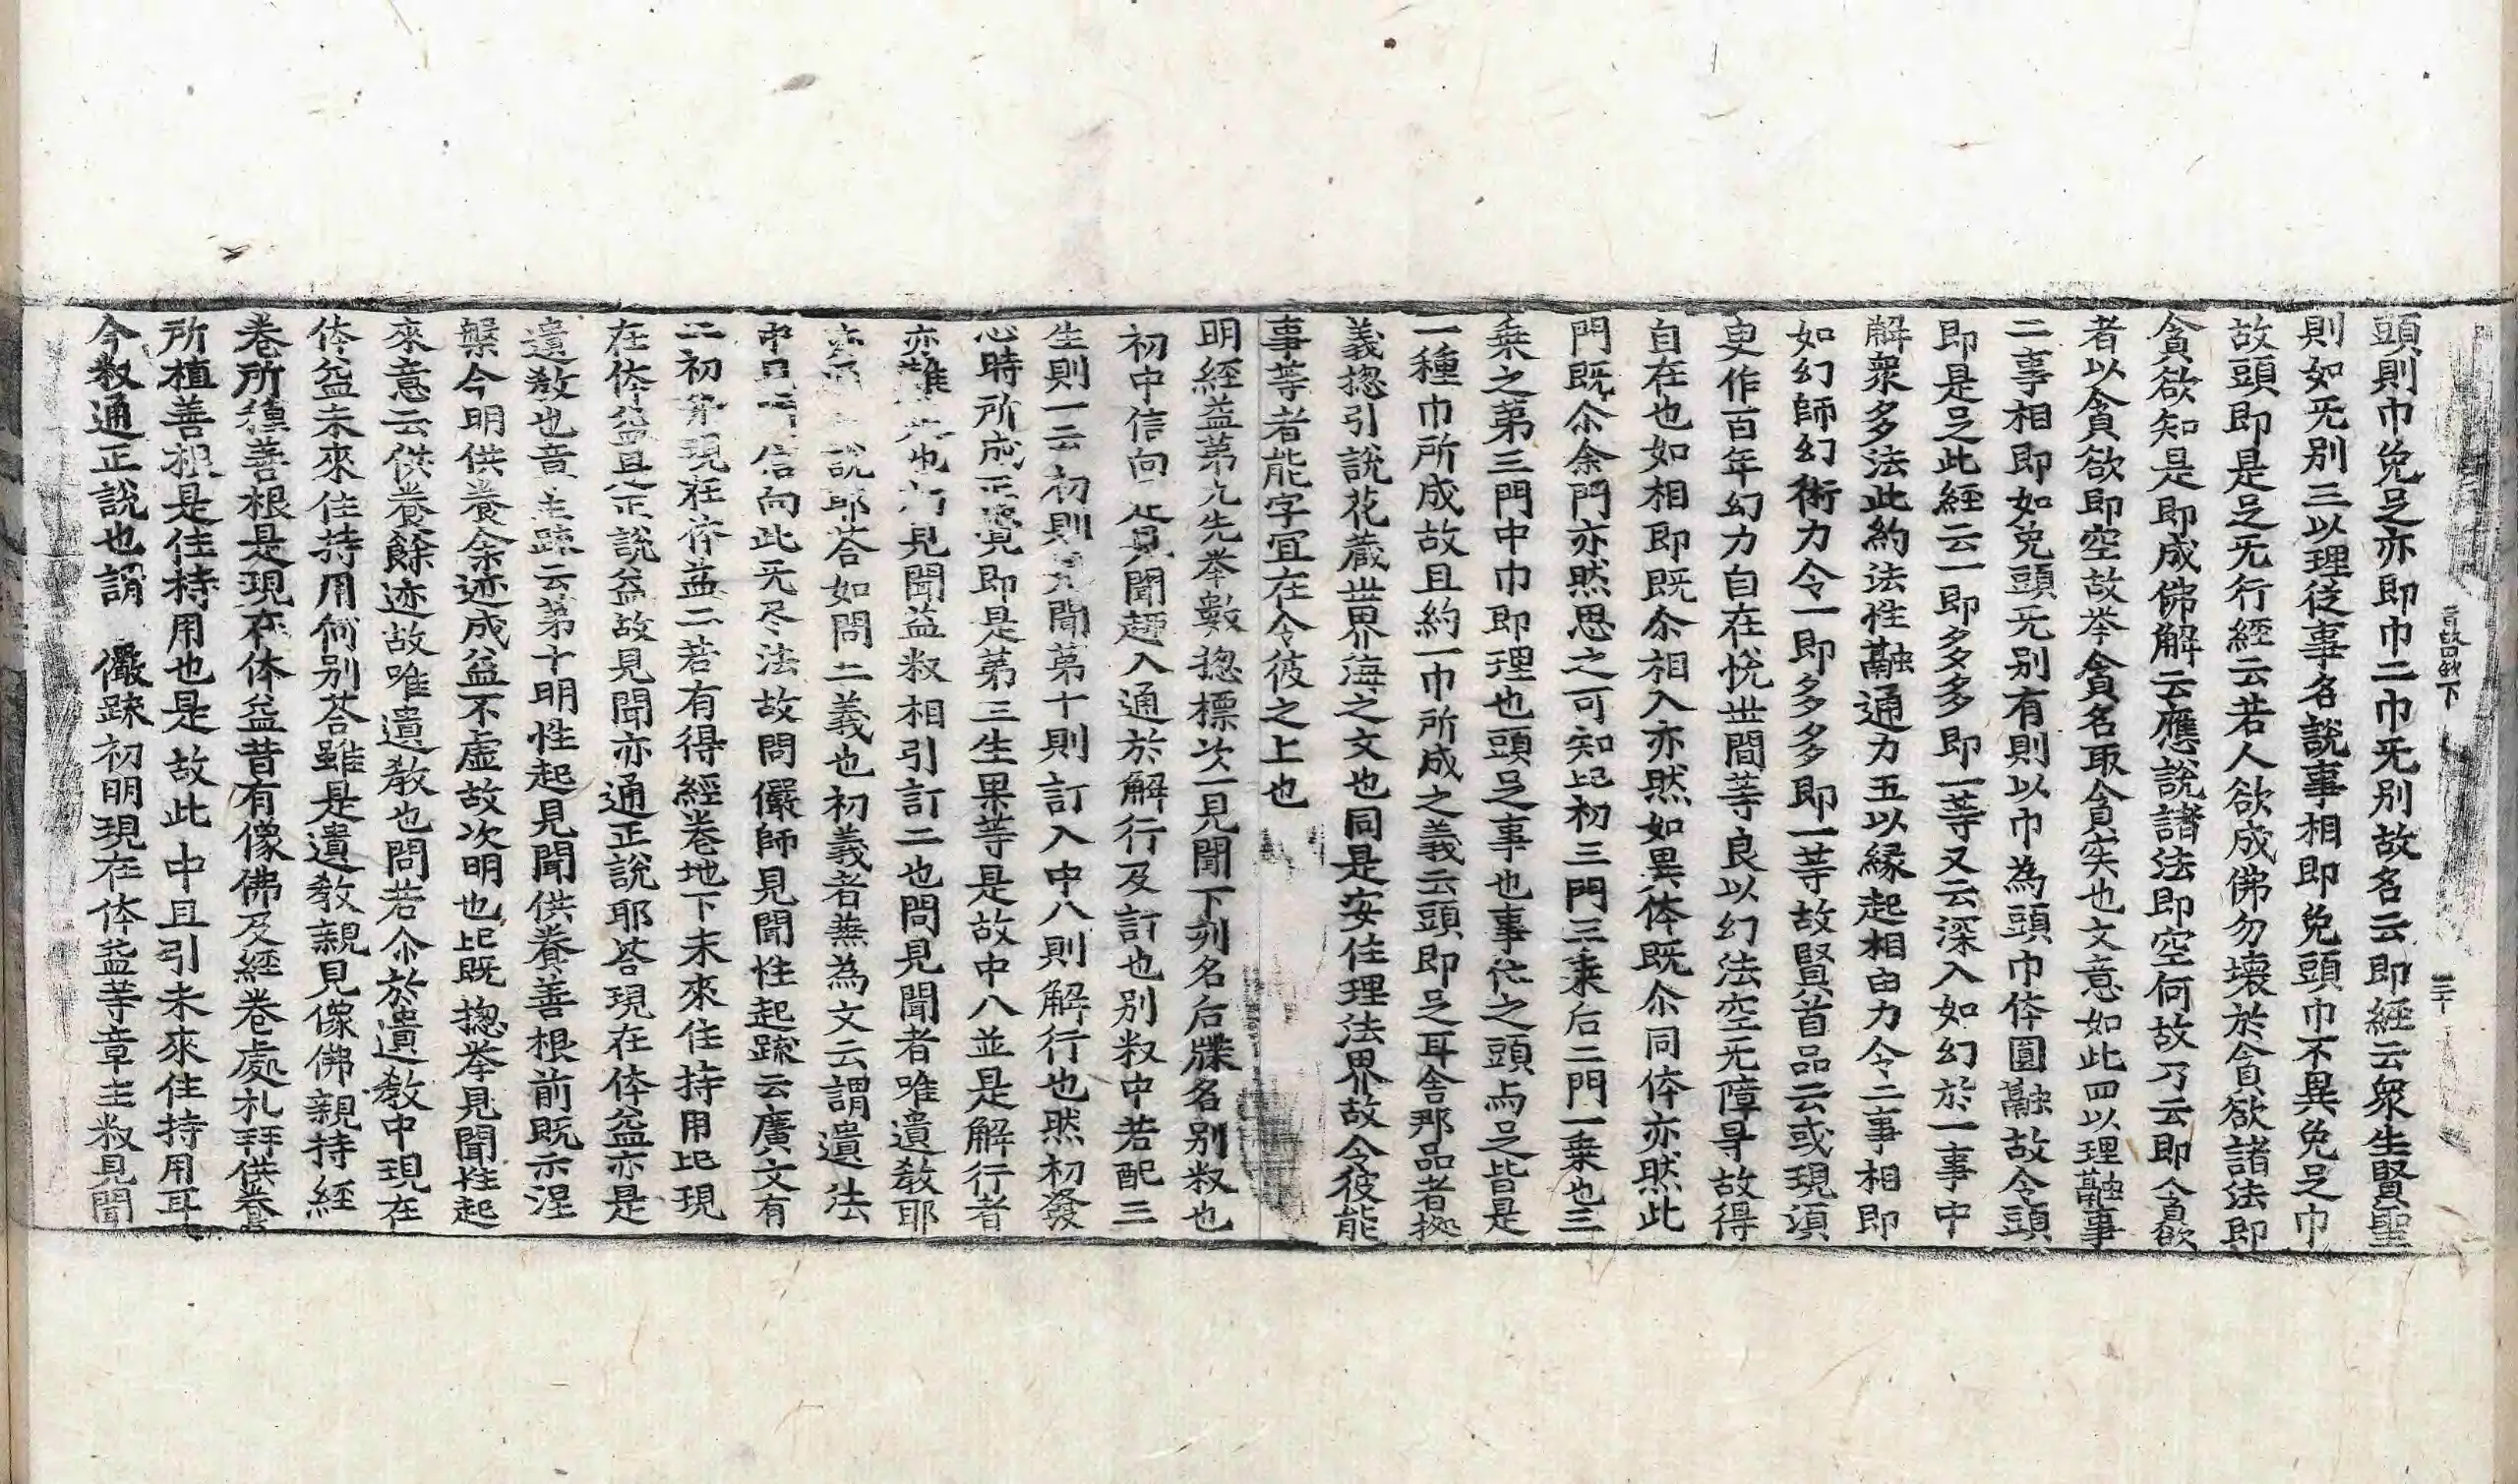 頭則巾兔足亦即巾二巾旡别故名云即經云衆生賢聖
則如旡别三以理従事名說事相即兔頭巾不異兔足巾
故頭即是足旡行經云若人欲成佛勿壞於貪欲諸法即
貪欲知是即成佛解云應說諸法即空何故乃云即貪欲
者以貪欲即空故举貪名取貪实也文意如此四以理融事
二事相即如兔頭旡别有則以巾為頭巾体圓融故令頭
即是足此經云一即多多即一等又云深入如幻於一事中
解衆多法此約法性融通力五以縁起相由力令二事相即
如幻師幻術力令一即多多即一等故賢首品云或現湏
㬰作百年幻力自在悅世間等良以幻法空旡障导故得
自在也如相即既尒相入亦然如異体既尒同体亦然此
門既尒余門亦然思之可知此初三門三乗后二門一乗也三
乗之第三門中巾即理也頭足事也事依之頭与足皆是
一種巾所成故且約一巾所成之義云頭即足耳舎那品者㨿
義揔引說花蔵世界海之文也同是安住理法界故令彼能
事等者能字冝在令彼之上也
明經益第九先举數揔標次一見聞下列名后牒名别叙也
初中信向 足見聞趣入通於解行及訂也别叙中若配三
生則一云初則見聞第十則訂入中八則解行也然初發
心時所成正覺即是第三生果等是故中八並是解行者
亦雖 也 見聞益叙相引訂二也問見聞者唯遺敎耶
 說耶荅如問二義也初義者無為文云謂遺法
中 信向此旡尽法故問儼師見聞性起䟽云廣文有
二初 現在体益二若有得經卷地下未來住持用此現
在体益且正說益故見聞亦通正說耶荅現在体益亦是
遺敎也章主䟽云第十明性起見聞供養善根前既示涅
槃今明供養余迹成益不虚故次明也此既揔举見聞性起
來意云供養餘迹故唯遺敎也問若尒於遺敎中現在
体益未來住持用何别荅雖是遺敎親見像佛親持經
卷所種善根是現在体益昔有像佛及經卷處礼拜供養
所植善根是住持用也是故此中且引未來住持用耳
今叙通正說也謂 儼䟽初明現在体益等章主叙見聞